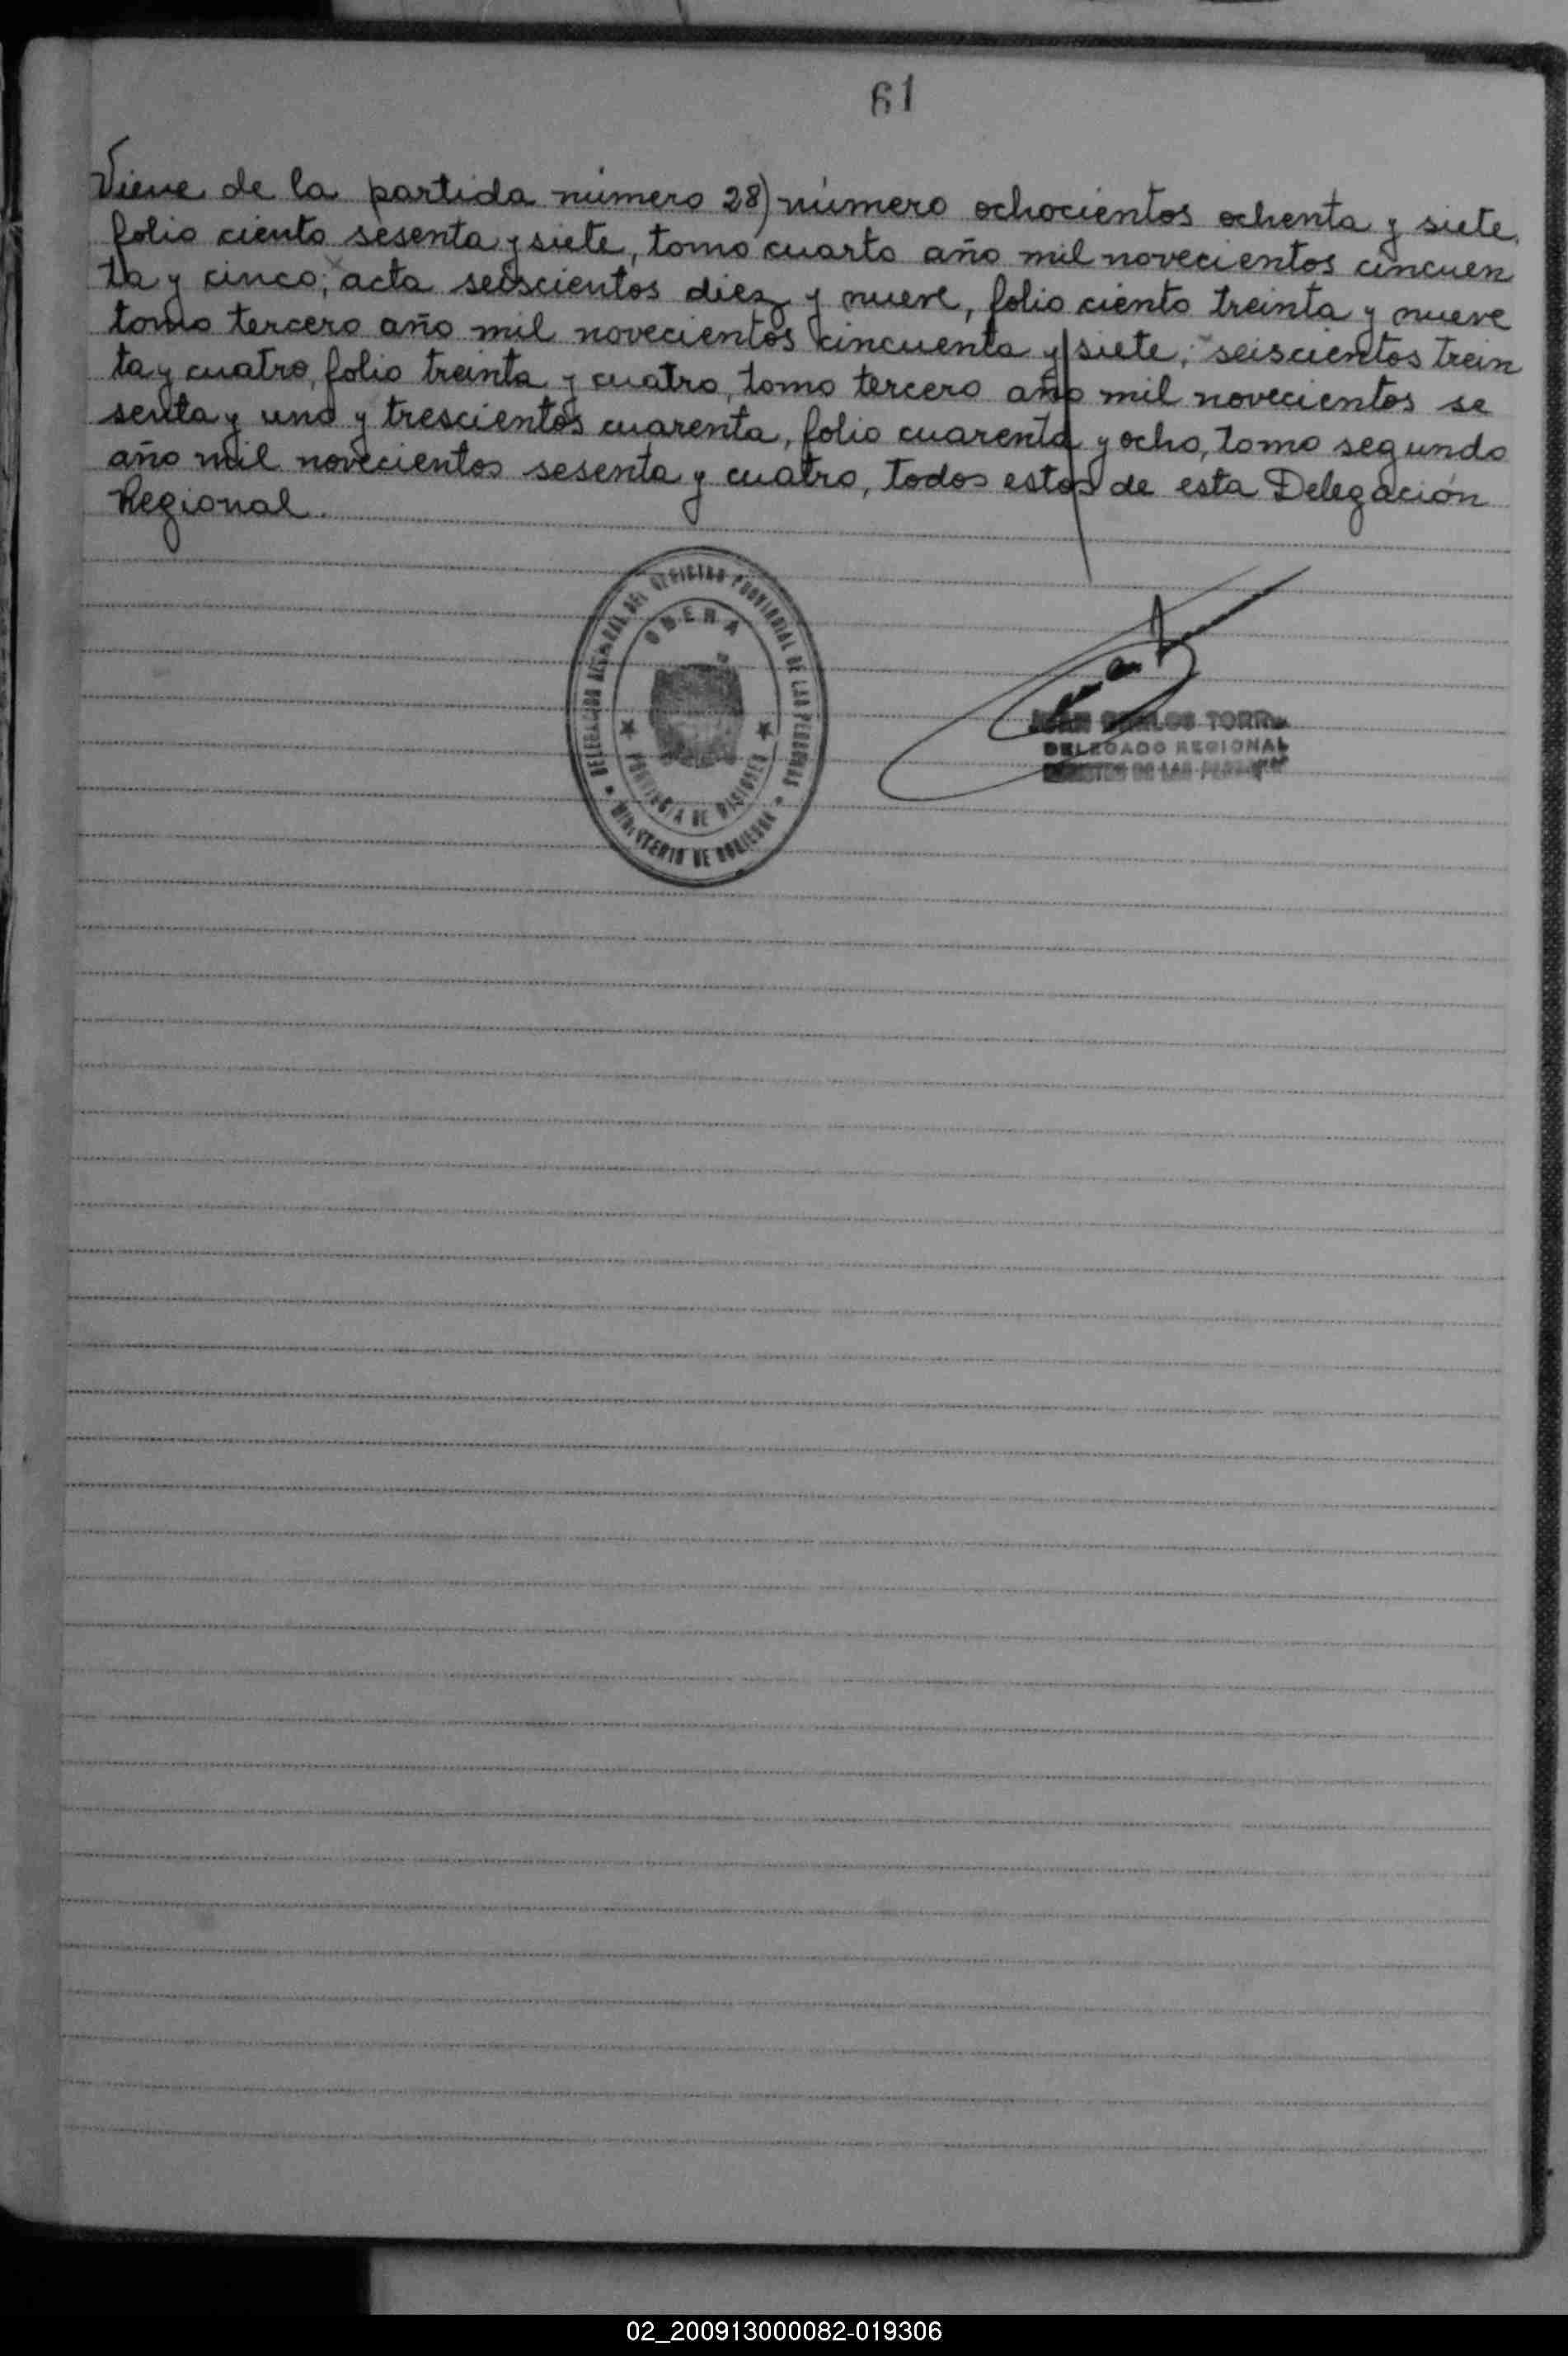 61
Viene de la partida número 28) número ochocientos ochenta y siete,
folio ciento sesenta y siete, tomo cuarto año mil novecientos cincuen
ta y cinco; acta seiscientos diez y nueve, folio ciento treinta y nueve
tomo tercero año mil novecientos cincuenta y siete; seiscientos trein
ta y cuatro, folio treinta y cuatro, tomo tercero año mil novecientos se
senta y uno y trescientos cuarenta, folio cuarenta y ocho, tomo segundo
año mil novecientos sesenta y cuatro, todos estos de esta Delegación
Regional.
DELEGACION REGIONAL DEL REGISTRO PROVINCIAL DE LAS PERSONAS
OBERA
PROVINCIA DE MISIONES
MINISTERIO DE GOBIERNO
JUAN CARLOS TORR
DELEGADO REGIONAL
DE LAS PERSONAS
02_200913000082-019306